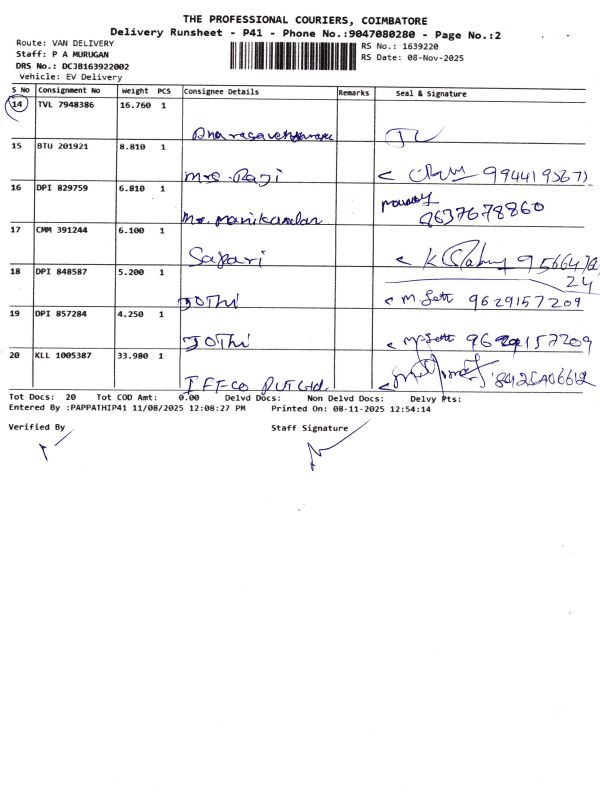 THE PROFESSIONAL COURIERS, COIMBATORE
Delivery Runsheet - P41 - Phone No.:9047080280 - Page No.:2
Route: VAN DELIVERY
Staff: P A MURUGAN
DRS No.: DCJB163922002
Vehicle: EV Delivery
RS No.: 1639220
RS Date: 08-Nov-2025
S No Consignment No Weight PCS Consignee Details Remarks Seal & Signature
14 TVL 7948386 16.760 1
15 BTU 201921 8.810 1 Mrs. Raji
16 DPI 829759 6.810 1 Mr. Manikandan 9637678860
17 CMM 391244 6.100 1 Safari
24
18 DPI 848587 5.200 1 JOThi 9629157209
19 DPI 857284 4.250 1 JOThi
20 KLL 1005387 33.980 1 IFFCO
Tot Docs: 20 Tot COD Amt: 0.00 Delvd Docs: Non Delvd Docs: Delvy Pts:
Entered By :PAPPATHIP41 11/08/2025 12:08:27 PM Printed On: 08-11-2025 12:54:14
Verified By Staff Signature